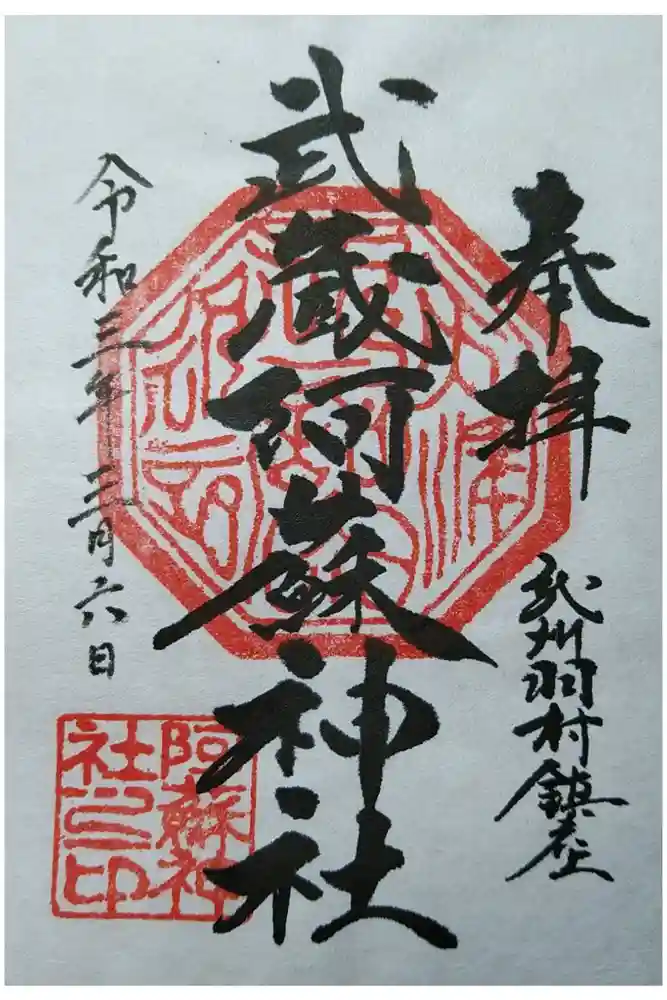 奉拝
武州羽村鎮座
武蔵阿蘇神社
令和三年三月六日
阿蘇神
社之印